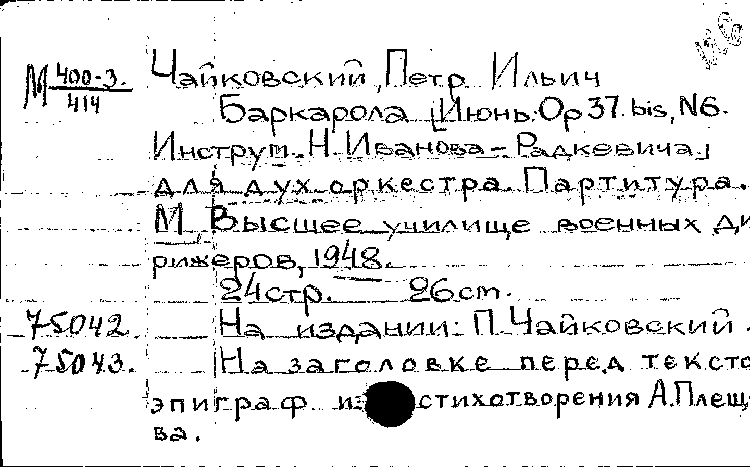 М 400-3. Чайковский, Петр Ильич
414 Баркарола [Июнь. Ор 37 bis, N6.
Инструм. Н. Иванова-Радкевича]
для дух. оркестра. Партитура.
М., Высшее училище военных ди
рижеров, 1948.
24 стр. 26 cm.
75042. На издании: П. Чайковский.
75043. На заголовке перед тексто
эпиграф из стихотворения А. Плещ
ва.